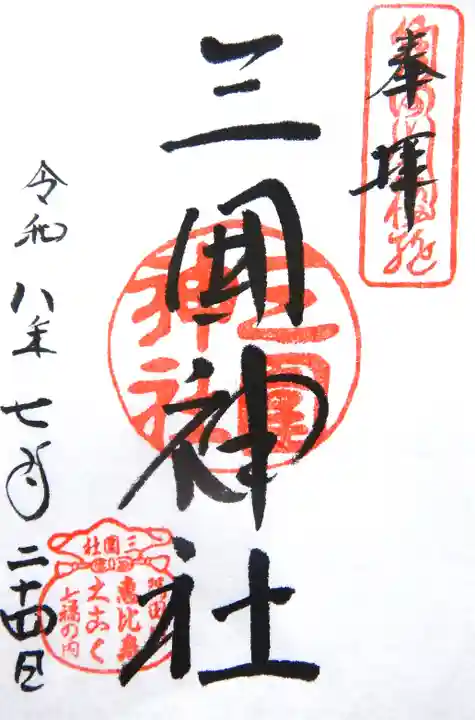 奉拝
三國神社
三國神社
令和八年七月二十四日
三國社
恵比寿
大こく
七福の内